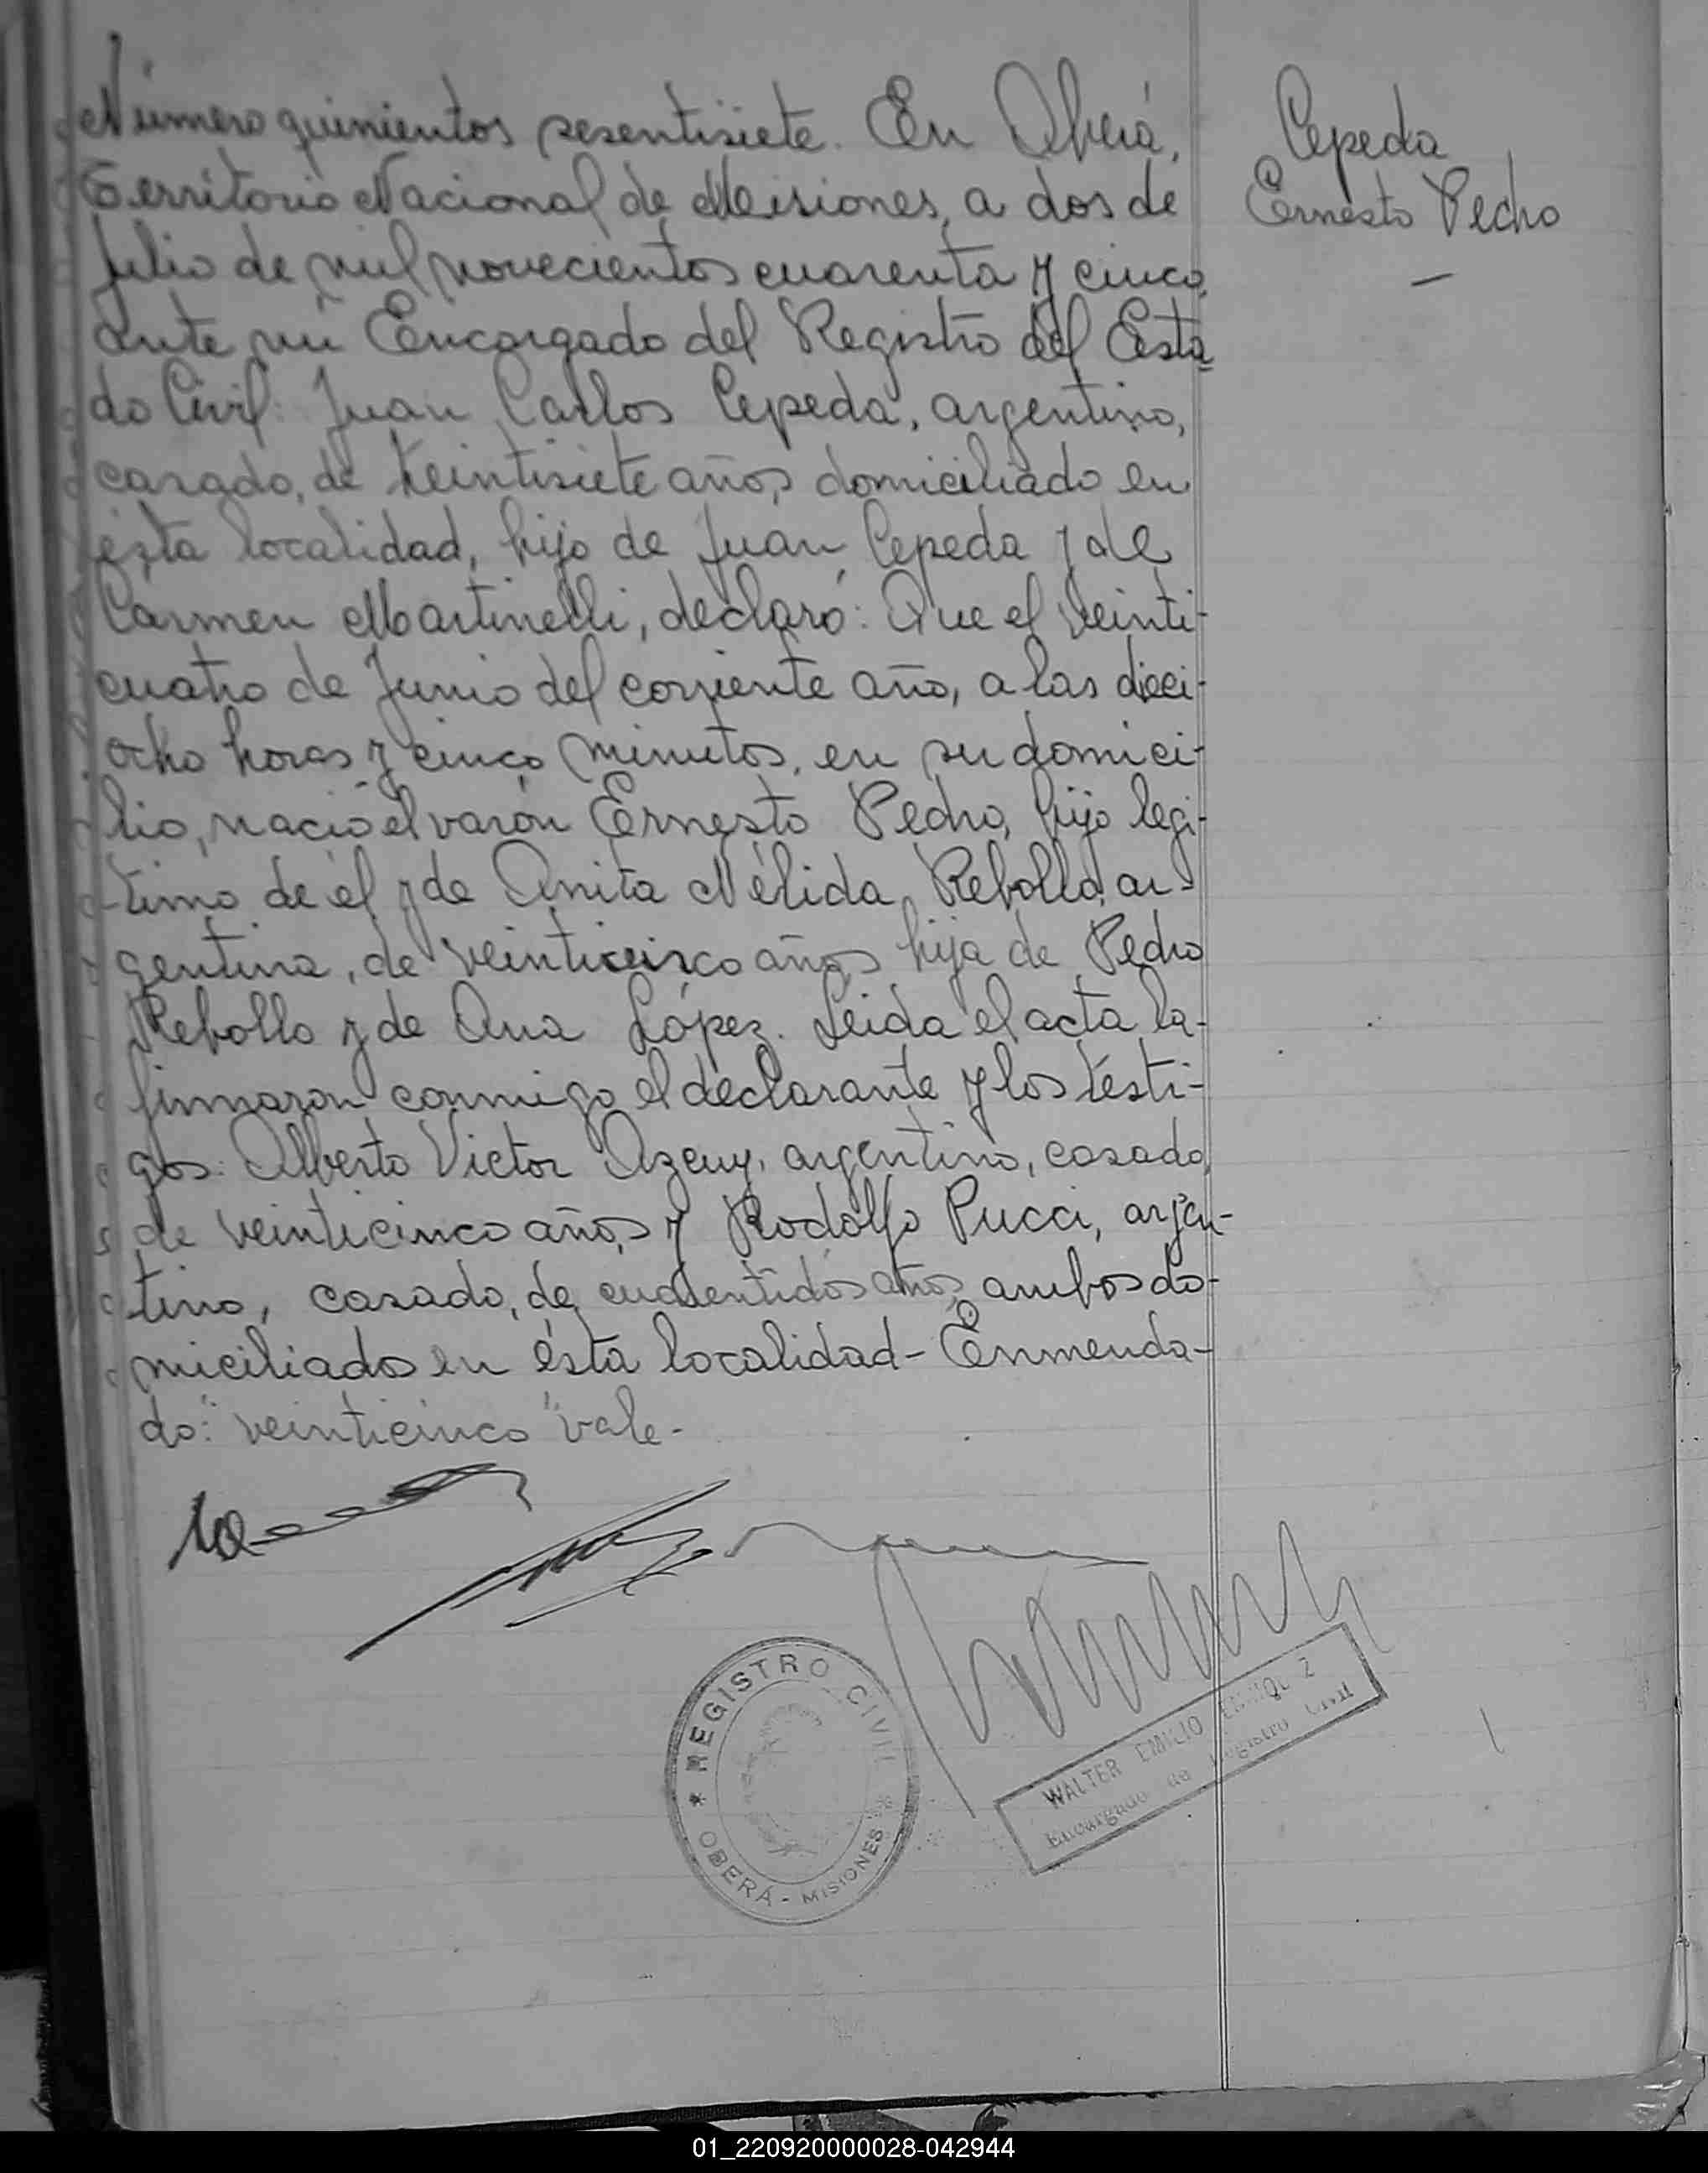 Número quinientos sesentisiete. En Oberá,
Territorio Nacional de Misiones, a dos de
Julio de mil novecientos cuarenta y cinco,
ante mi Encargado del Registro del Esta
do Civil: Juan Carlos Cepeda, argentino,
casado, de treintisiete años, domiciliado en
ésta localidad, hijo de Juan Cepeda y de
Carmen Martinelli, declaró: Que el veinti-
cuatro de Junio del corriente año, a las dieci-
ocho horas y cinco minutos, en su domici-
lio, nació el varón Ernesto Pedro, hijo legi-
timo de él y de Anita Nélida Rebollo, ar-
gentina, de veinticinco años hija de Pedro
Rebollo y de Ana López. Leida el acta la-
firmaron conmigo el declarante y los testi-
gos: Alberto Victor Azcuy, argentino, casado,
de veinticinco años y Rodolfo Pucci, argen-
tino, casado, de cuarentidós años, ambos do-
miciliados en ésta localidad- Enmenda-
do: "veinticinco" vale-
Cepeda
Ernesto Pedro
—
* REGISTRO CIVIL *
OBERÁ - MISIONES
WALTER EMILIO
Encargado de Registro Civil
01_220920000028-042944